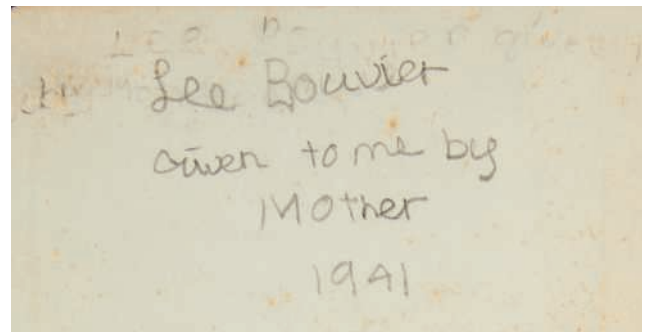 Lee Bouvier
Given to me by
Mother
1941